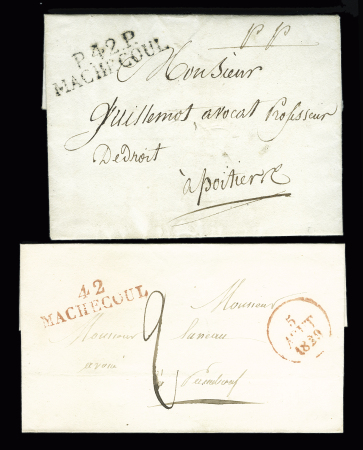 P.42.P.
MACHECOUL
p p
Monsieur
Guillemot avocat Professeur
De droit
à poitiers
42
MACHECOUL
5
AOUT
1829
2
Monsieur
Monsieur
avoué
à